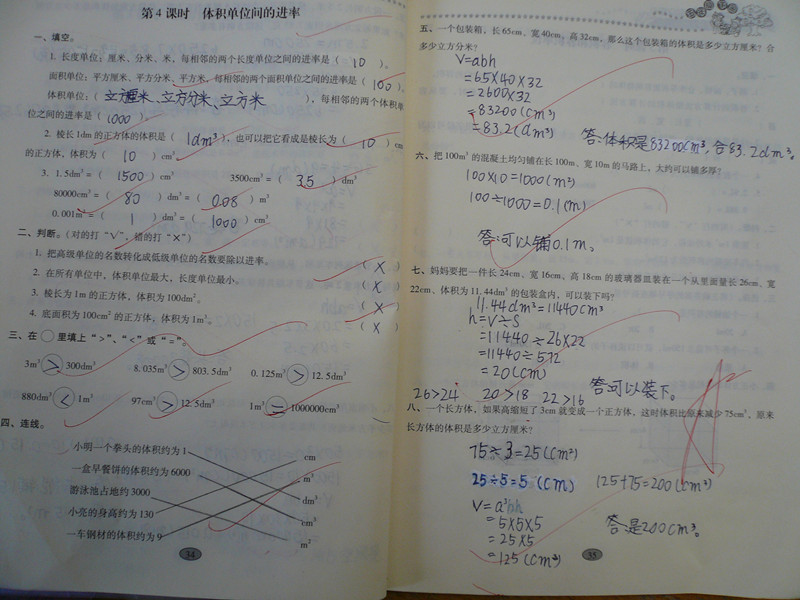 第4课时 体积单位间的进率
一、填空。
1. 长度单位:厘米、分米、米,每相邻的两个长度单位之间的进率是( 10 )。
面积单位:平方厘米、平方分米、平方米,每相邻的两个面积单位之间的进率是( 100 )。
体积单位:( 立方厘米、立方分米、立方米 ),每相邻的两个体积单
位之间的进率是( 1000 )。
2. 棱长1dm的正方体的体积是( 1dm³ ),也可以把它看成是棱长为( 10 )cm
的正方体,体积为( 10 )cm³
3. 1.5dm³=( 1500 )cm³ 3500cm³=( 3.5 )dm³
80000cm³=( 80 )dm³=( 0.08 )m³
0.001m³=( 1 )dm³=( 1000 )cm³
二、判断。(对的打“√”,错的打“×”)
1. 把高级单位的名数转化成低级单位的名数要除以进率。 ( × )
2. 在所有单位中,体积单位最大,长度单位最小。 ( × )
3. 棱长为1m的正方体,体积为100dm³。 ( × )
4. 底面积为100cm²的正方体,体积为1m³。 ( × )
三、在○里填上“>”、“<”或“=”。
3m³ > 300dm³ 8.035m³ > 803.5dm³ 0.125m³ > 12.5dm³
880dm³ < 1m³ 97cm³ > 12.5dm³ 1m³ = 1000000cm³
四、连线。
小明一个拳头的体积约为1 cm
一盒早餐饼的体积约为6000 m³
游泳池占地约3000 dm³
小亮的身高约为130 cm³
一车钢材的体积约为9 m²
34
五、一个包装箱,长65cm,宽40cm,高32cm,那么这个包装箱的体积是多少立方厘米?合
多少立方分米?
V=abh
=65×40×32
=2600×32
=83200(cm³)
=83.2(dm³)
答:体积是83200cm³,合83.2dm³。
六、把100m³的混凝土均匀铺在长100m、宽10m的马路上,大约可以铺多厚?
100×10=1000(m²)
100÷1000=0.1(m)
答:可以铺0.1m。
七、妈妈要把一件长24cm、宽16cm、高18cm的玻璃器皿装在一个从里面量长26cm、宽
22cm、体积为11.44dm³的包装盒内,可以装下吗?
11.44dm³=11440cm³
h=V÷S
=11440÷26×22
=11440÷572
=20(cm)
26>24 20>18 22>16 答:可以装下。
八、一个长方体,如果高缩短了3cm就变成一个正方体,这时体积比原来减少75cm³,原来
长方体的体积是多少立方厘米?
75÷3=25(cm²)
25÷5=5(cm) 125+75=200(cm³)
V=a³
=5×5×5
=25×5
=125(cm³)
答:是200cm³。
35